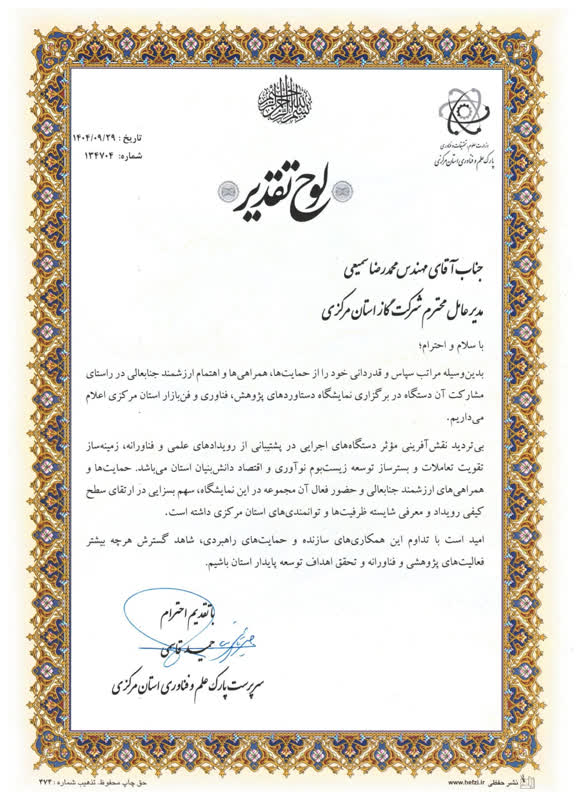 بسم الله الرحمن الرحیم
وزارت علوم، تحقیقات و فناوری
پارک علم و فناوری استان مرکزی
تاریخ : ۱۴۰۴/۰۹/۲۹
شماره: ۱۳۴۷۰۴
لوح تقدیر
جناب آقای مهندس محمدرضا سمیعی
مدیرعامل محترم شرکت گاز استان مرکزی
با سلام و احترام؛
بدین‌وسیله مراتب سپاس و قدردانی خود را از حمایت‌ها، همراهی‌ها و اهتمام ارزشمند جنابعالی در راستای
مشارکت آن دستگاه در برگزاری نمایشگاه دستاوردهای پژوهش، فناوری و فن‌بازار استان مرکزی اعلام
می‌داریم.
بی‌تردید نقش‌آفرینی مؤثر دستگاه‌های اجرایی در پشتیبانی از رویدادهای علمی و فناورانه، زمینه‌ساز
تقویت تعاملات و بسترساز توسعه زیست‌بوم نوآوری و اقتصاد دانش‌بنیان استان می‌باشد. حمایت‌ها و
همراهی‌های ارزشمند جنابعالی و حضور فعال آن مجموعه در این نمایشگاه، سهم بسزایی در ارتقای سطح
کیفی رویداد و معرفی شایسته ظرفیت‌ها و توانمندی‌های استان مرکزی داشته است.
امید است با تداوم این همکاری‌های سازنده و حمایت‌های راهبردی، شاهد گسترش هرچه بیشتر
فعالیت‌های پژوهشی و فناورانه و تحقق اهداف توسعه پایدار استان باشیم.
با تقدیم احترام
حمید قاسمی
سرپرست پارک علم و فناوری استان مرکزی
نشر حفظی www.hefzi.ir
حق چاپ محفوظ. تذهیب شماره : ۴۷۴